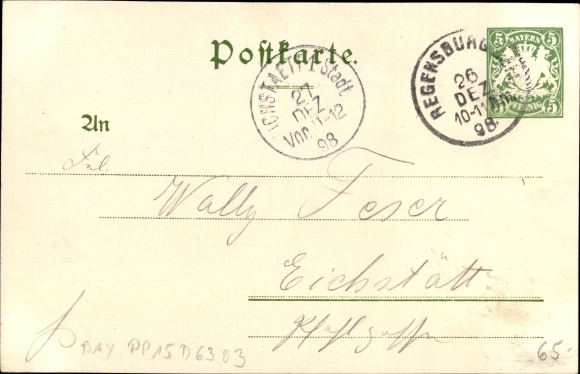 Postkarte.
5 BAYERN 5
REGENSBURG
26
DEZ
10-11
98.
EICHSTAETT 1 Stadt.
27
DEZ
Vor. 11-12
98
An
Frl.
Wally Feser
Eichstätt
BAY PP15 D6303
65.-